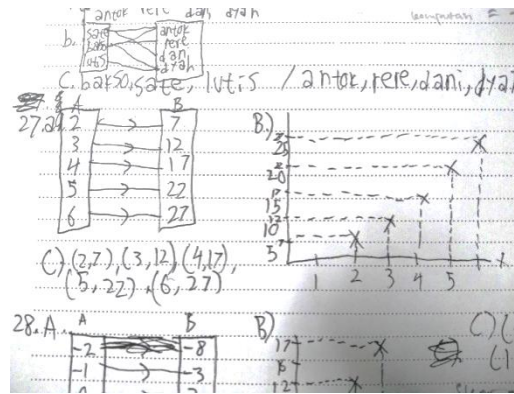 antok rere dani dyah
b.
sate antok
bakso rere
lutis dani
dyah
C. bakso, sate, lutis / antok, rere, dani, dya
27. a. A B
2 7
3 12
4 17
5 22
6 27
B.)
25
20
15
10
5
1 2 3 4 5
C) (2,7), (3,12), (4,17),
(5,22), (6,27)
28. A. A B
-2 -8
-1 -3
B)
17
15
12
C) (
(1